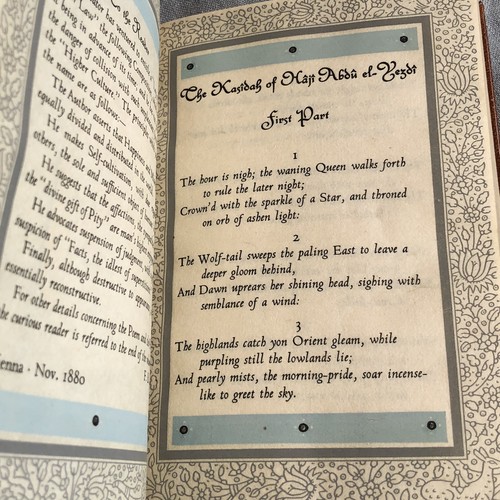 To the Reader
"Law," the following
in advance of its time
the danger of collision with
the "Higher Culture." The principles
the name are as follows:—
The Author asserts that Happiness
equally divided and distributed
He makes Self-cultivation,
others, the sole and sufficient object of human
He suggests that the affections, the
the "divine gift of Pity," are man's
He advocates suspension of judgment, with
suspicion of "Facts, the idlest of superstitions."
Finally, although destructive to appearance
essentially reconstructive.
For other details concerning the Poem and
the curious reader is referred to the end of the
Vienna · Nov. 1880
The Kasîdah of Hâjî Abdû el-Yezdî
First Part
1
The hour is nigh; the waning Queen walks forth
to rule the later night;
Crown'd with the sparkle of a Star, and throned
on orb of ashen light:
2
The Wolf-tail sweeps the paling East to leave a
deeper gloom behind,
And Dawn uprears her shining head, sighing with
semblance of a wind:
3
The highlands catch yon Orient gleam, while
purpling still the lowlands lie;
And pearly mists, the morning-pride, soar incense-
like to greet the sky.